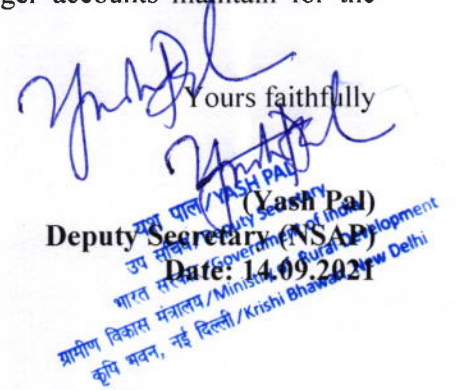 ger accounts maintain for the
Yours faithfully
(Yash Pal)
Deputy Secretary (NSAP)
Date: 14.09.2021
यश पाल/YASH PAL
उप सचिव/Deputy Secretary
भारत सरकार/Government of India
ग्रामीण विकास मंत्रालय/Ministry of Rural Development
कृषि भवन, नई दिल्ली/Krishi Bhawan, New Delhi